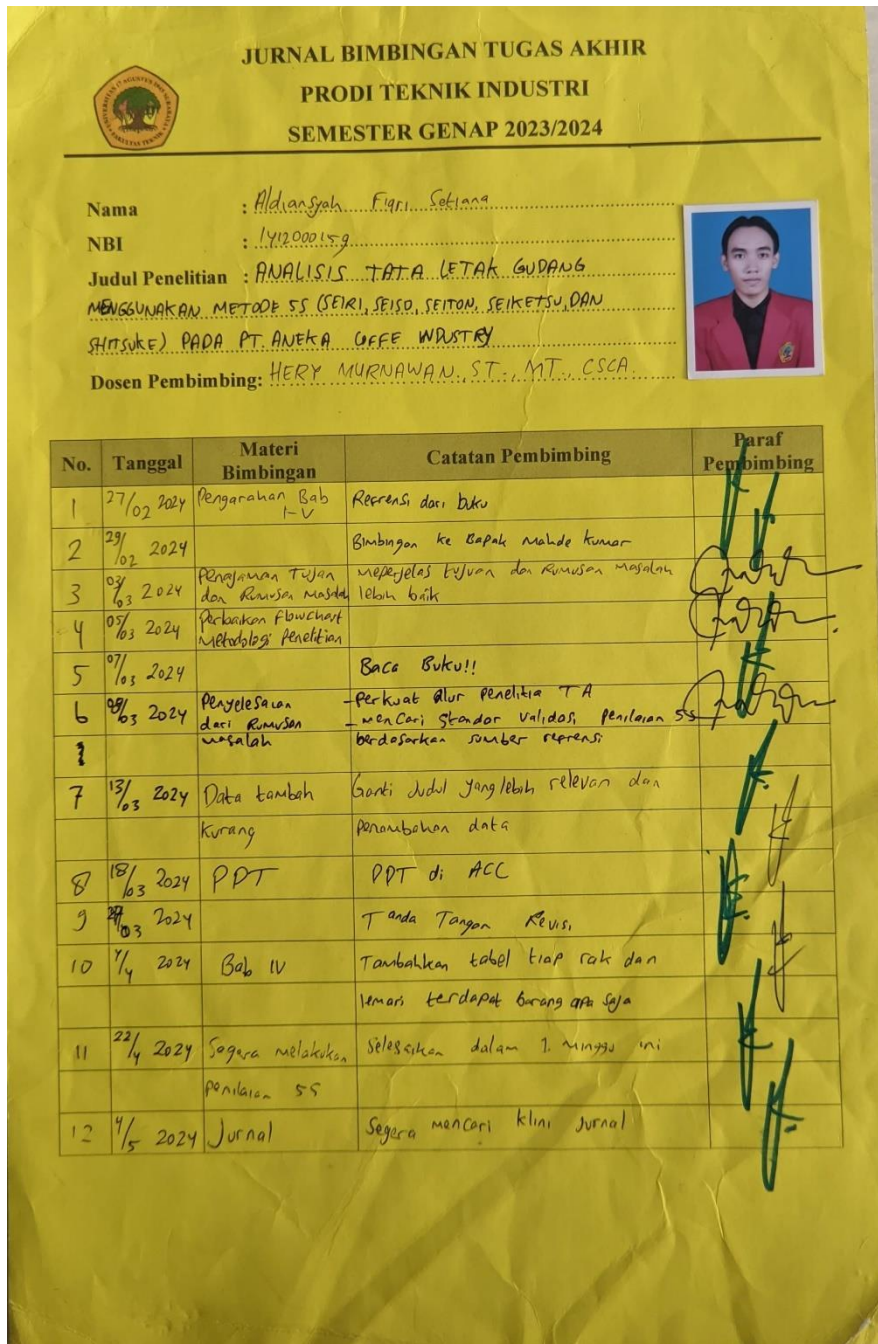 JURNAL BIMBINGAN TUGAS AKHIR
PRODI TEKNIK INDUSTRI
SEMESTER GENAP 2023/2024
Nama : Aldiansyah Fiqri Setiana
NBI : 1412000159
Judul Penelitian : ANALISIS TATA LETAK GUDANG
MENGGUNAKAN METODE 5S (SEIRI, SEISO, SEITON, SEIKETSU, DAN
SHITSUKE) PADA PT. ANEKA COFFE INDUSTRY
Dosen Pembimbing: HERY MURNAWAN., ST., MT., CSCA.
No. Tanggal Materi Bimbingan Catatan Pembimbing Paraf Pembimbing
1 27/02 2024 Pengarahan Bab I-V Refrensi dari buku
2 29/02 2024 Bimbingan ke Bapak Mahde Kumar
3 03/03 2024 Penajaman Tujuan Meperjelas tujuan dan Rumusan Masalah
dan Rumusan Masalah lebih baik
4 05/03 2024 Perbaikan Flowchart
Metodologi Penelitian
5 07/03 2024 Baca Buku!!
6 03 2024 Penyelesaian -Perkuat Alur Penelitia TA
dari Rumusan -mencari Standar validasi Penilaian 5S
masalah berdasarkan sumber reprensi
7 13/03 2024 Data tambah Ganti Judul yang lebih relevan dan
kurang Penambahan data
8 18/03 2024 PPT PPT di ACC
9 03 2024 Tanda Tangan Revisi
10 /4 2024 Bab IV Tambahkan tabel tiap rak dan
lemari terdapat barang apa saja
11 22/4 2024 Segera melakukan Selesaikan dalam 1. Minggu ini
Penilaian 5S
12 4/5 2024 Jurnal Segera mencari klini Jurnal